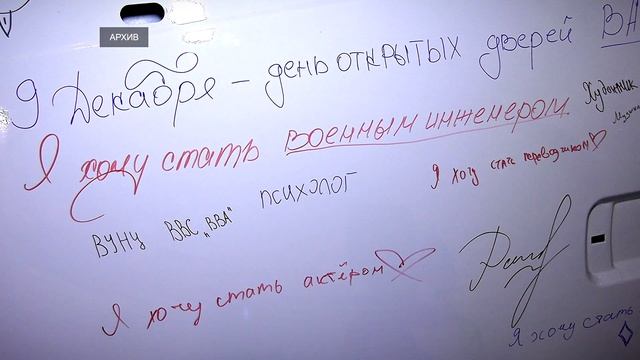 АРХИВ
9 Декабря - день открытых дверей ВА
Художник
Я хочу стать военным инженером
Я хочу стать переводчиком
психолог
ВУНЦ ВВС „ВВА"
Я хочу стать актёром
Я хочу стать